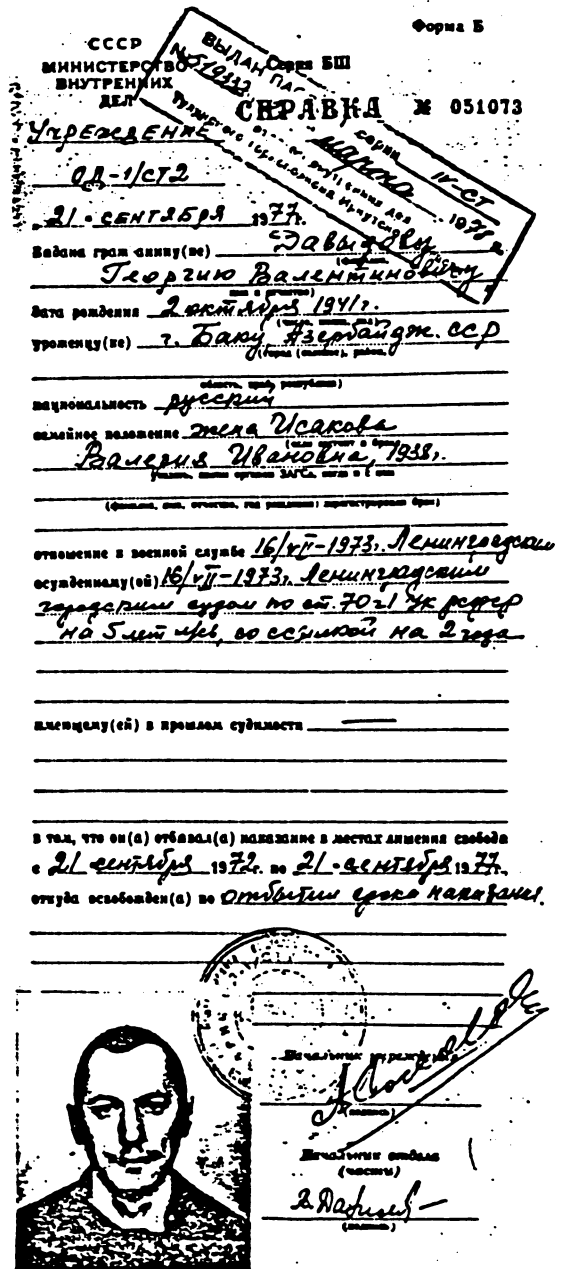 Форма Б
СССР
МИНИСТЕРСТВО
ВНУТРЕННИХ
ДЕЛ
Серия БШ
СПРАВКА № 051073
ВЫДАН
серии IV-СТ
№ 519332
марта 1978 г.
Учреждение
ОД-1/СТ2
„21 сентября 1977 г.
Выдана гражданину(ке) Давыдову
(фамилия,
Георгию Валентиновичу
имя и отчество)
Дата рождения 2 октября 1941 г.
(число, месяц, год)
уроженцу(ке) г. Баку, Азербайдж. ССР
(город (селение), район,
область, край, республика)
национальность русский
семейное положение жена Исакова
(если состоит в браке
Валерия Ивановна, 1938 г.
(фамилия, имя, отчество, год рождения) зарегистрирован брак)
отношение к военной службе 16/VII-1973 г. Ленинградским
осужденному(ой) 16/VII-1973 г. Ленинградским
городским судом по ст. 70 ч1 УК РСФСР
на 5 лет л/св, со ссылкой на 2 года
имеющему(ей) в прошлом судимости —
в том, что он(а) отбывал(а) наказание в местах лишения свободы
с 21 сентября 1972 г. по 21 сентября 1977 г.
откуда освобожден(а) по отбытии срока наказания.
Начальник учреждения
(подпись)
Начальник отдела
(части)
(подпись)